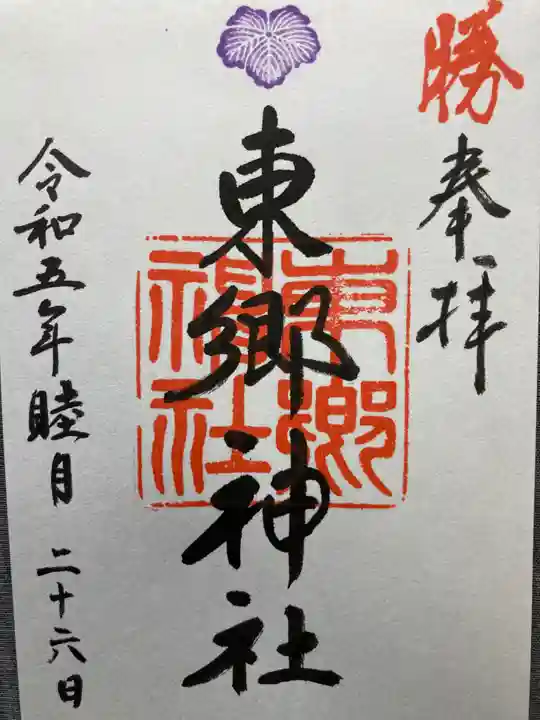 勝
奉拝
東郷神社
東郷
神社
令和五年睦月 二十六日